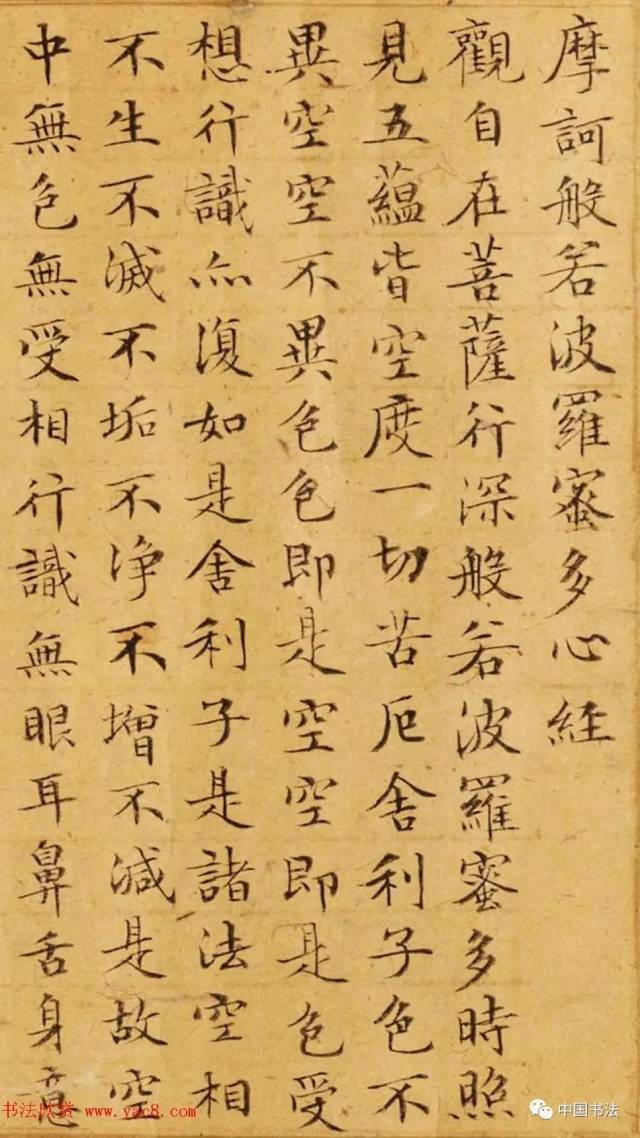 摩訶般若波羅蜜多心経
觀自在菩薩行深般若波羅蜜多時照
見五蘊皆空度一切苦厄舍利子色不
異空空不異色色即是空空即是色受
想行識亦復如是舍利子是諸法空相
不生不滅不垢不浄不增不減是故空
中無色無受相行識無眼耳鼻舌身意
书法欣赏 www.yac8.com
中国书法